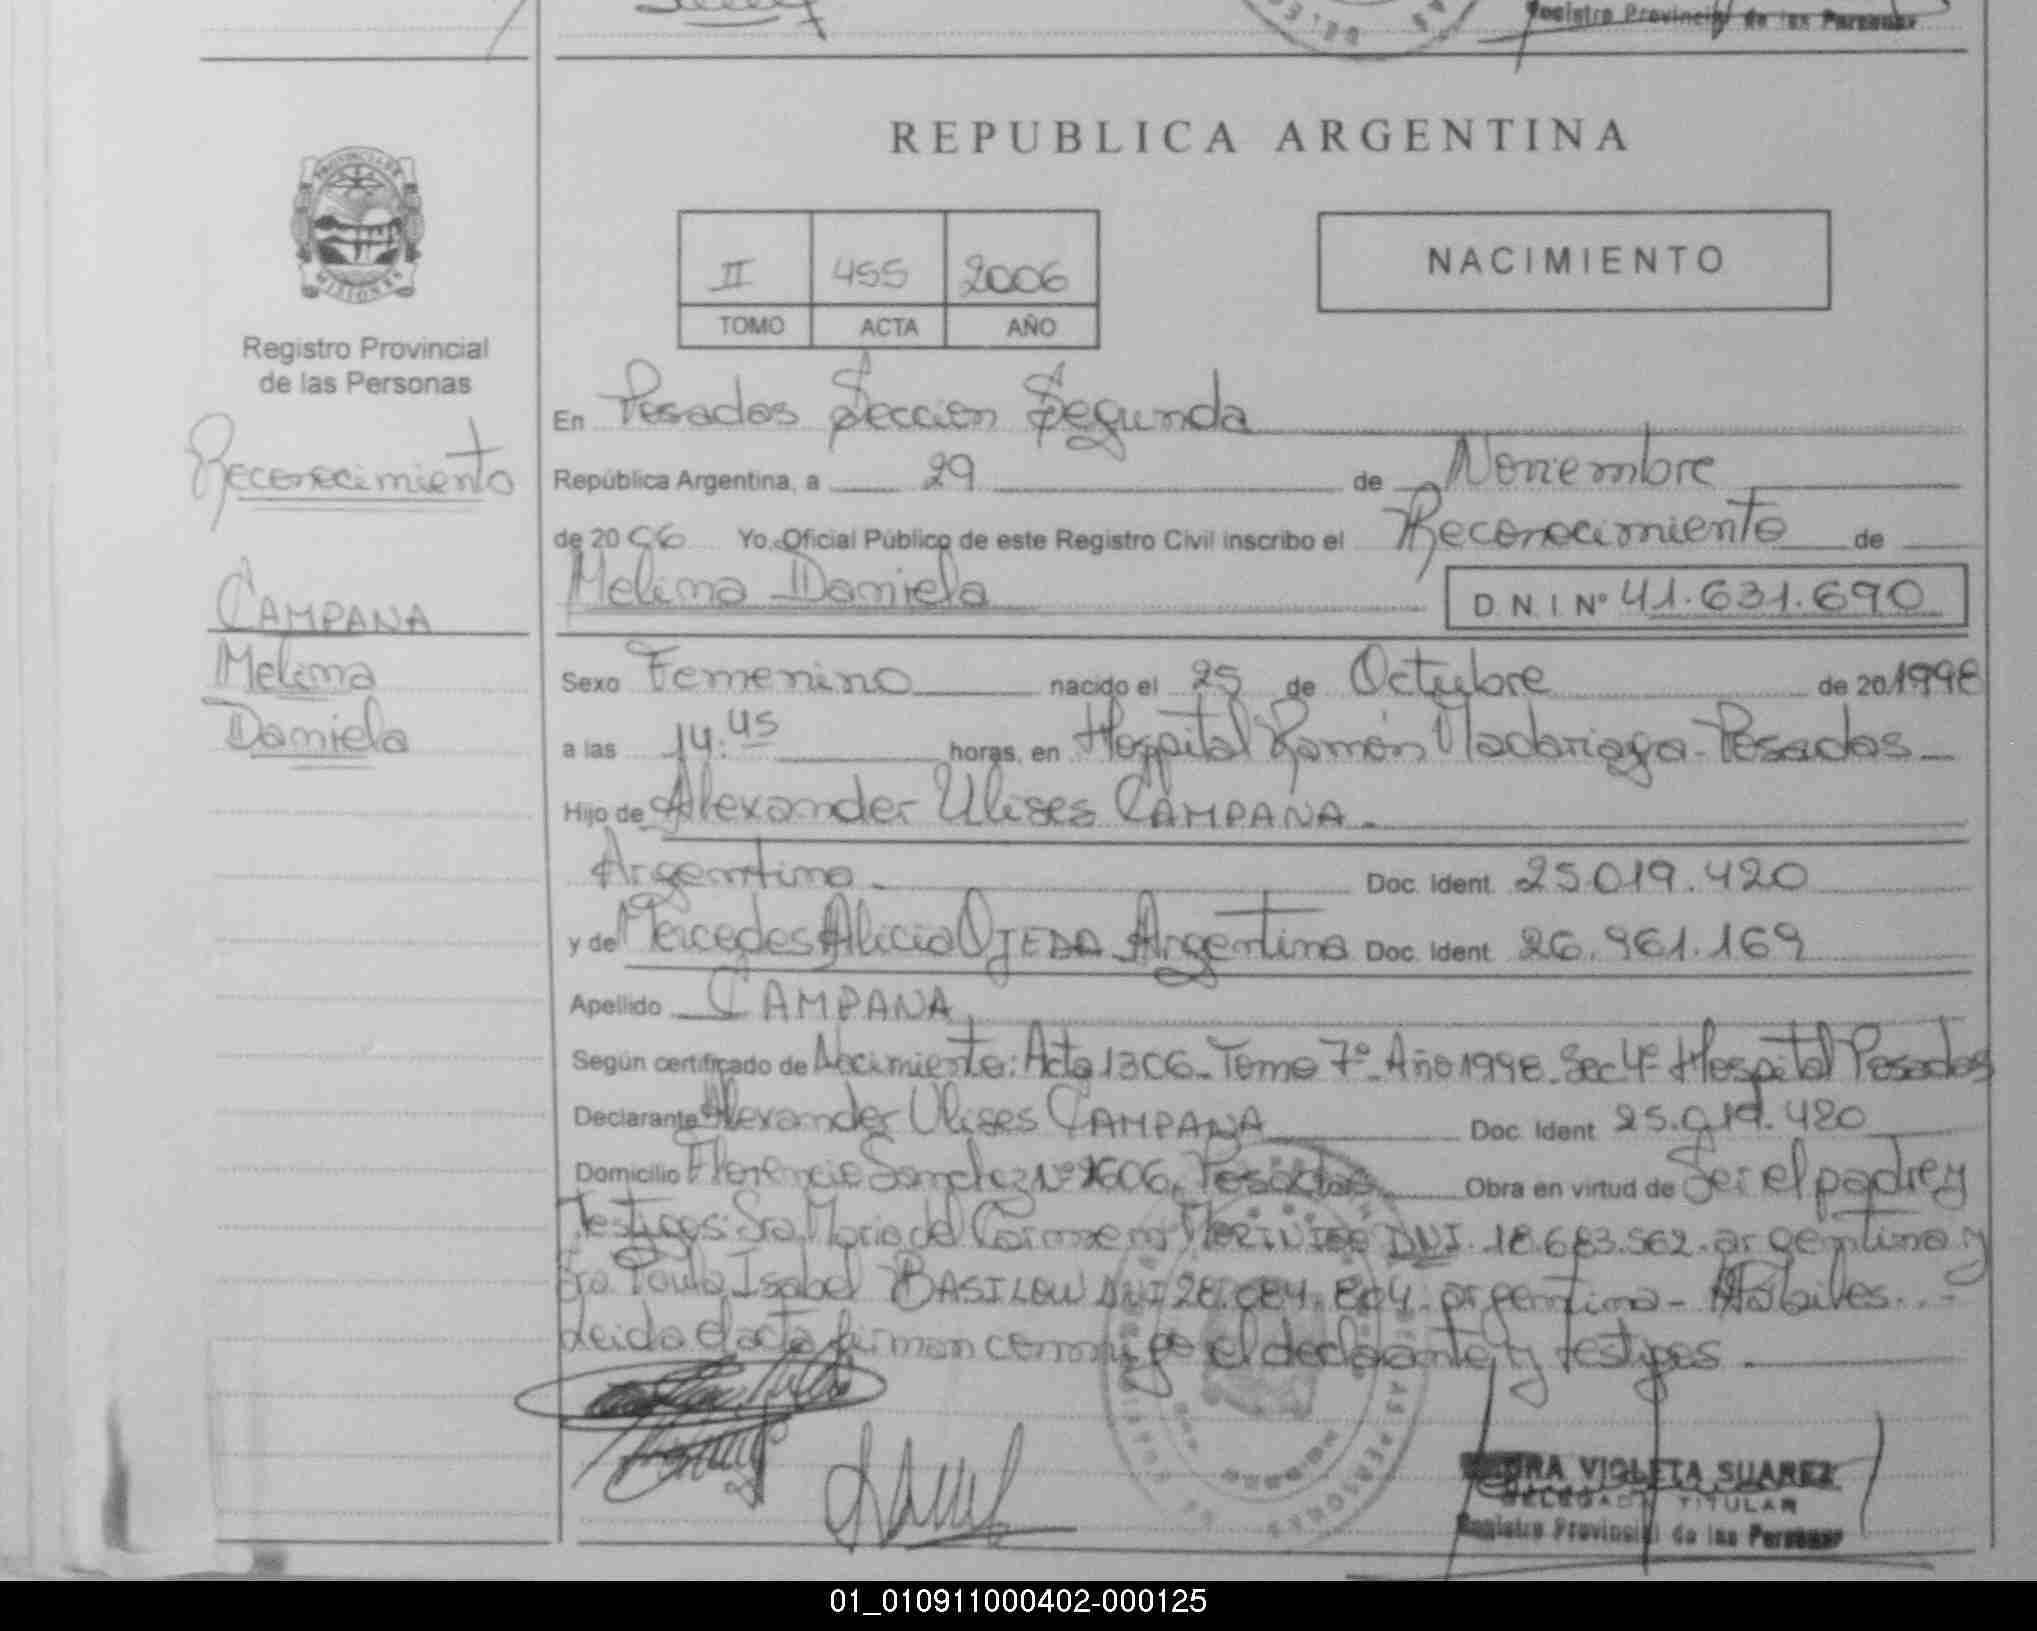 Registro Provincial de las Personas
REPUBLICA ARGENTINA
PROVINCIA DE
MISIONES
II 455 2006
TOMO ACTA AÑO
NACIMIENTO
Registro Provincial
de las Personas
Reconocimiento
CAMPANA
Melina
Daniela
En Posadas Seccion Segunda
República Argentina, a 29 de Noviembre
de 2006 Yo, Oficial Público de este Registro Civil inscribo el Reconocimiento de
Melina Daniela D.N.I Nº 41.631.690
Sexo Femenino nacido el 25 de Octubre de 20 1998
a las 14:45 horas, en Hospital Ramón Madariaga - Posadas
Hijo de Alexander Ulises CAMPANA.
Argentino Doc. Ident. 25.019.420
y de Mercedes Alicia OJEDA Argentina Doc. Ident. 26.961.169
Apellido CAMPANA
Según certificado de Nacimiento: Acta 1306 - Tomo 7º - Año 1998 - Sec 4º Hospital Posadas
Declarante Alexander Ulises CAMPANA Doc. Ident. 25.019.420
Domicilio Florencio Sanchez Nº 1606, Posadas Obra en virtud de Ser el padre y
Testigos: Sra. Maria del Carmen DNI. 18.683.562. argentina y
Sra. Paula Isabel BASILOW DNI 28.084.804. argentina - Hábiles. . -
Leida el acta firman conmigo el declarante y testigos
VIOLETA SUAREZ
DELEGADA TITULAR
Registro Provincial de las Personas
01_010911000402-000125